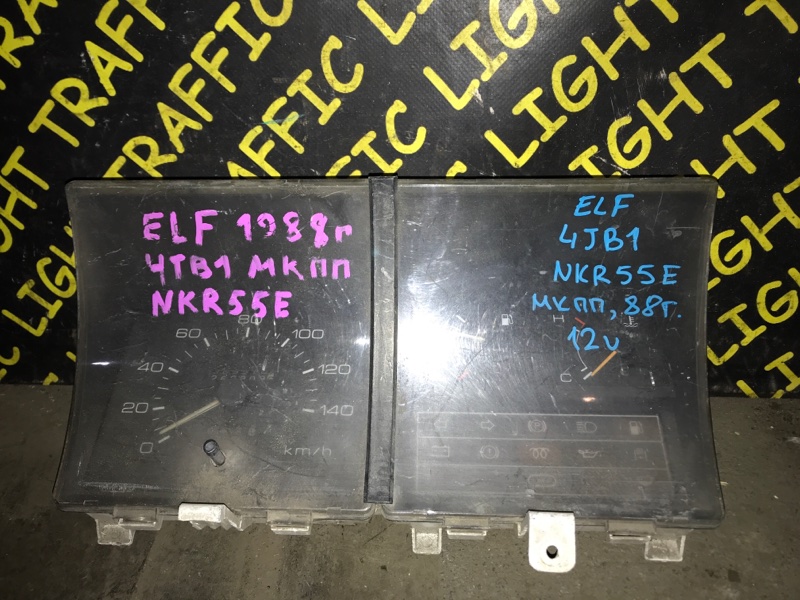 TRAFFIC LIGHT TRAFFIC LIGHT TRAFFIC LIGHT
ELF 1988г
4JB1 МКПП
NKR55E
ELF
4JB1
NKR55E
МКПП, 88г.
12v
0
20
40
60
80
100
120
140
km/h
H
C